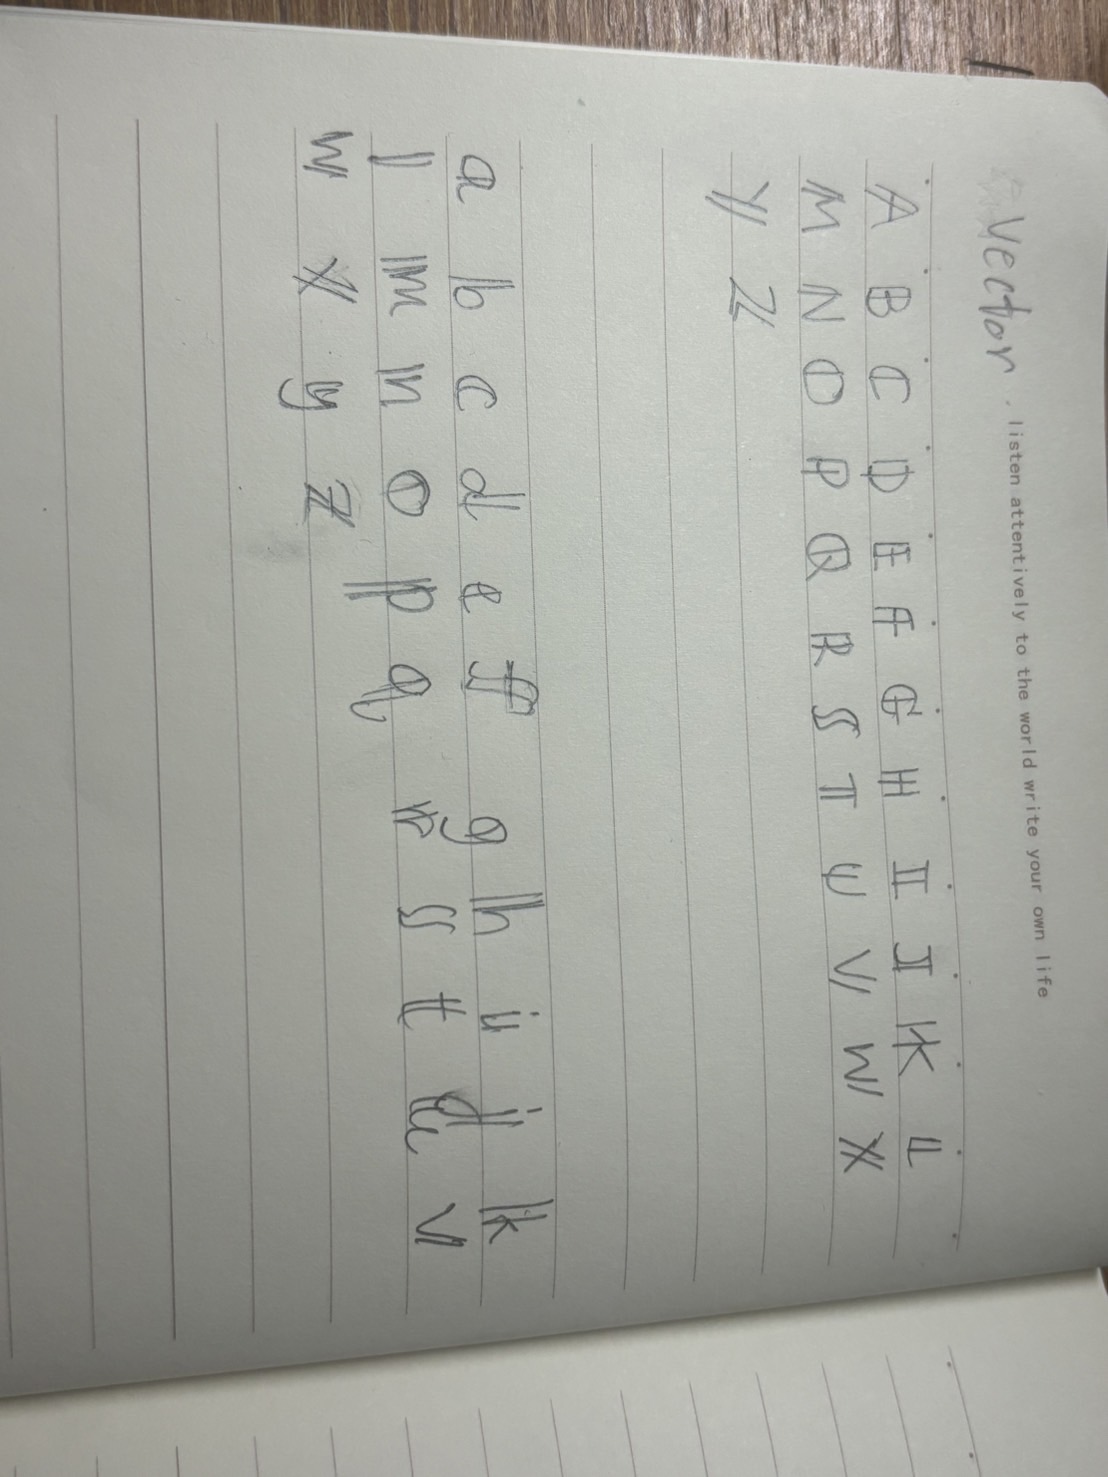 Vector. listen attentively to the world write your own life
A B C D E F G H I J K L
M N O P Q R S T U V W X
Y Z
a b c d e f g h i j k
l m n o p q r s t u v
w x y z